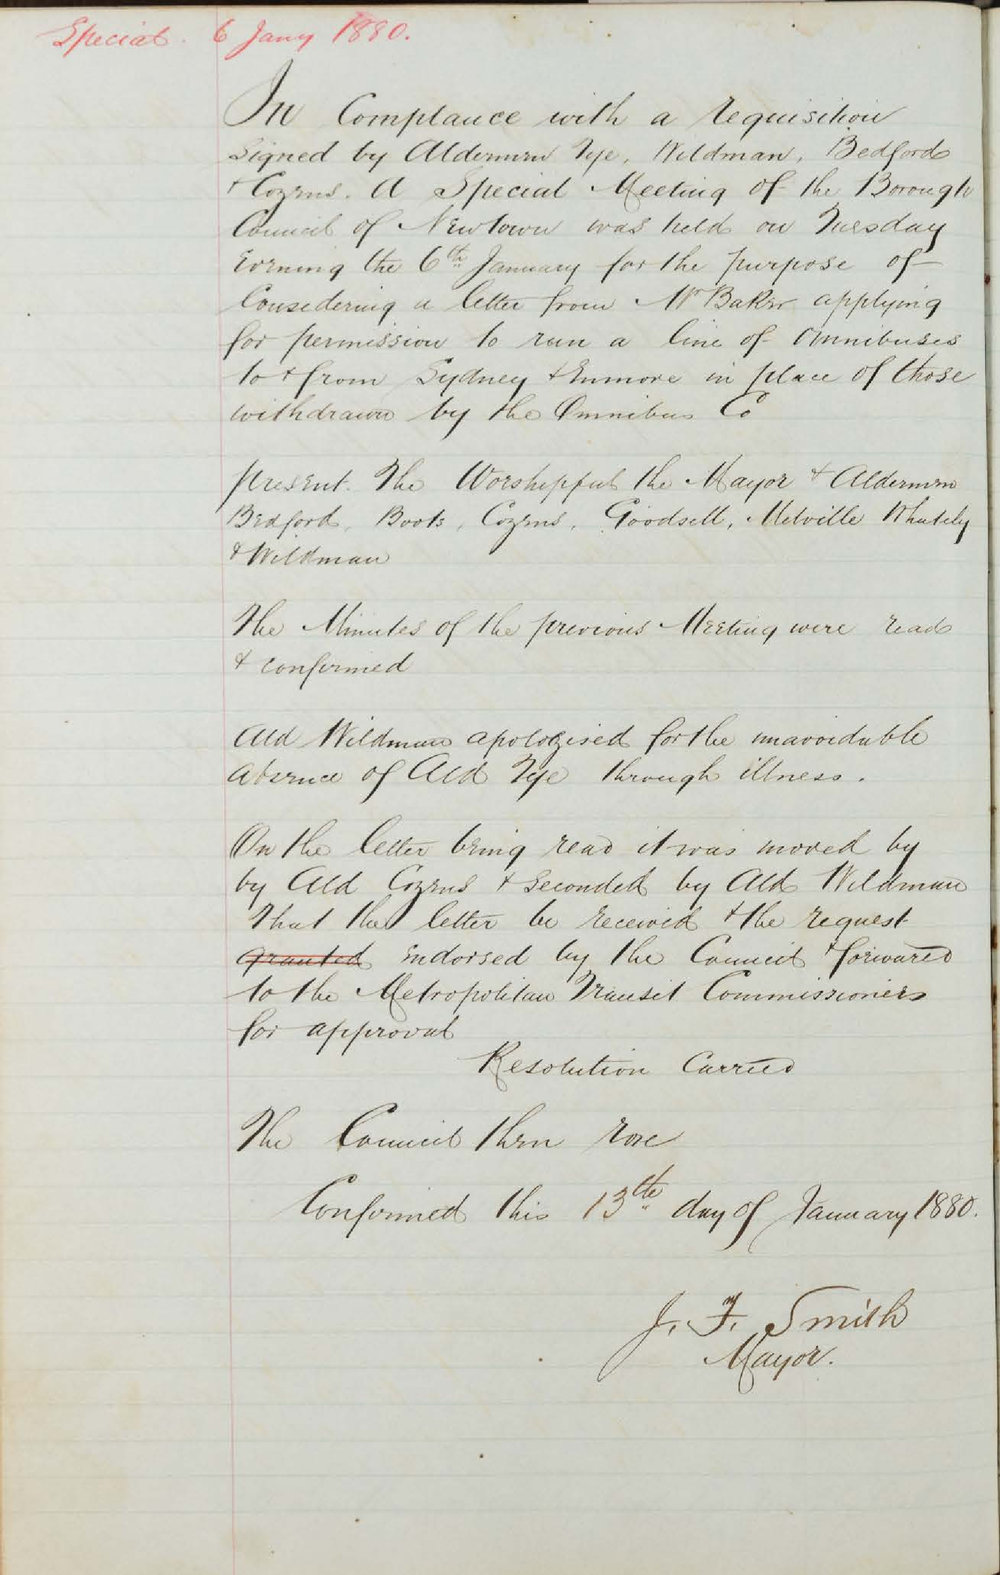 Special. 6 Jany 1880.
In Complance with a requisition
signed by Aldermen Tye, Wildman, Bedford
& Cozens. A Special Meeting of the Borough
Council of Newtown was held on Tuesday
Evening the 6th January for the purpose of
Considering a letter from Mr Baker applying
for permission to run a line of Omnibuses
to & from Sydney & Enmore in place of those
withdrawn by the Omnibus Co
present. The Worshipful the Mayor & Aldermen
Bedford, Boots, Cozens, Goodsell, Melville Whately
& Wildman
The Minutes of the previous Meeting were read
& confirmed
Ald Wildman apologised for the unavoidable
absence of Ald Tye through illness.
On the letter being read it was moved by
by Ald Cozens & seconded by Ald Wildman
That the letter be received & the request
granted Endorsed by the Council & forwared
to the Metropolitan Transit Commissioners
for approval
Resolution Carried
The Council then rose
Confirmed this 13th day of January 1880.
J. F. Smith
Mayor.